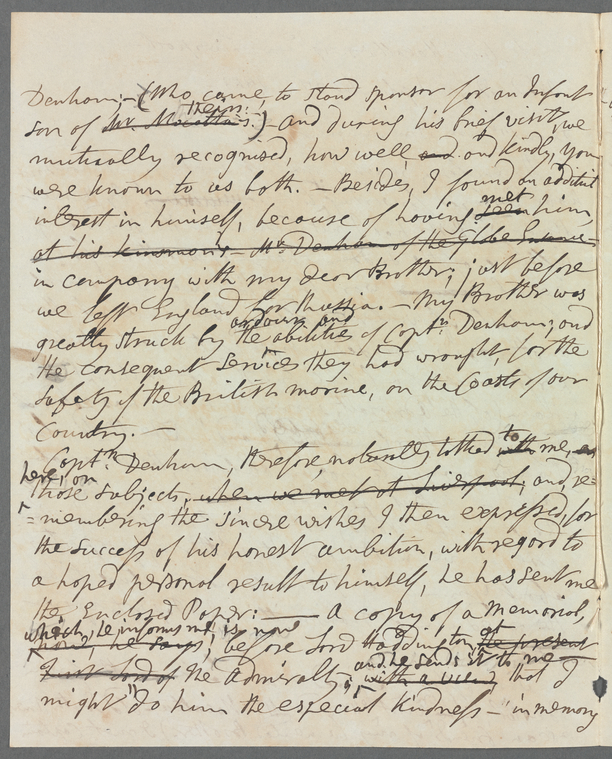 Denham;—(Who came, to stand sponsor for an Infant
son of Mr Mocatta's: theirs:)—and during his brief visit, we
mutually recognised, how well, and and kindly, You
were known to us both. — Besides, I found an additl
interest in himself, because of having seen met him,
at his kinsman's - Mr. Denham of the Globe
in company with my dear Brother; just before
we left England for Russia. — My Brother was
greatly struck by the ardour, and abilities of Captn Denham; and
the consequent services they had wrought, for the
safety of the British marine, on the Coasts of our
Country. —
Captn Denham, therefore, naturally talked with to me,
here, on those subjects, when we met at Liverpool, and re=
=membering the sincere wishes I then expressed, for
the success of his honest ambition, with regard to
a hoped personal result to himself, he has sent me
the Enclosed Paper: — a copy of a Memorial,
now, he says, which, he informs me, is now before Lord Haddington, the present at
first Lord of the Admiralty; with a view and he sends it to me that I
might "do him the especial kindness — "in memory